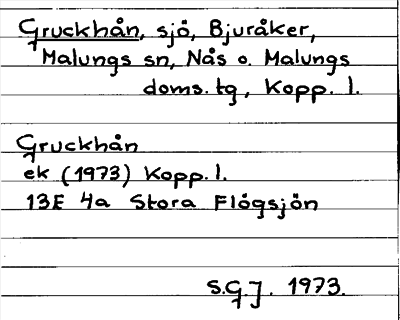 Gruckhån, sjö, Bjuråker,
Malungs sn, Nås o. Malungs
doms. tg, Kopp. l.
Gruckhån
ek (1973) Kopp. l.
13E 4a Stora Flögsjön
S.G.J. 1973.